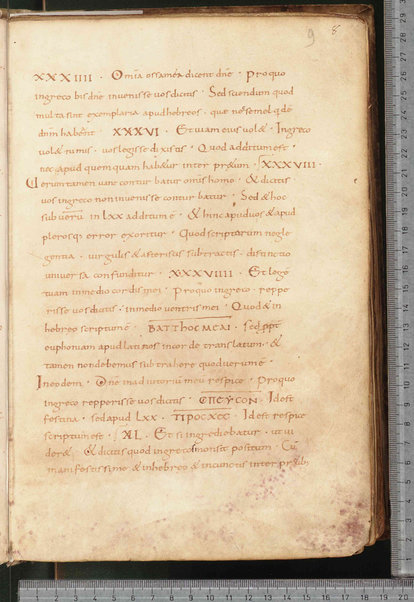 9 8
XXXIIII · Omīa ossamea dicent dnē · Proquo
ingreco bis dnē invenisse vos dicitis · Sed sciendum quod
multa sint exemplaria apud hebreos · que nec semel
dnm habent XXXVI · Et uam eius vol& · In greco
vol& rumis · vos legisse dixistis · Quod additum est ·
nec apud quem quam hab&ur inter pr&um · XXXVIII ·
Verumtamen vane contur batur omis homo · & dicitis
vos ingreco non invenisse contur batur · Sed & hoc
sub veru in lxx additum ē · & hinc apud vos & apud
plerosq; error exoritur · Quod scriptorum negle
gentia · virgulis & asteriscis subtractis · distinctio
universa confunditur · XXXVIIII · Et legē
tuam in medio cordis mei · Proquo ingreco · reppe
risse vos dicitis · in medio ventris mei · Quod & in
hebreo scriptum ē · BATTHOCMEAI · sed ppt
euphoniam apud latinos in cor de translatum · &
tamen non debemus subtrahere quod verum ē ·
In eodem · Dne in adiutoriū meū respice · Pro quo
ingreco repperisse vos dicitis · CΠEYCON · Id est
festina · sed apud Lxx · ΠPOCXEC · Id est respice
scriptum est · XL · Et si ingrediebatur · ut vi
der& · & dicitis quod ingreco si non sit positum · Cū
manifestissime & in hebreo & in cunctis inter pr&ib;